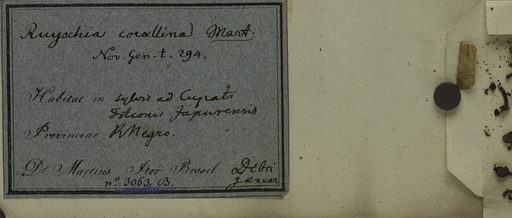 Ruyschia corallina Mart.
Nov. Gen. t. 294.
Habitat in sylvis ad Cupati
Japurensis
Provinciae R Negro.
Dr Martius Iter Brasil. Debri
n.° 3063. B. Januar